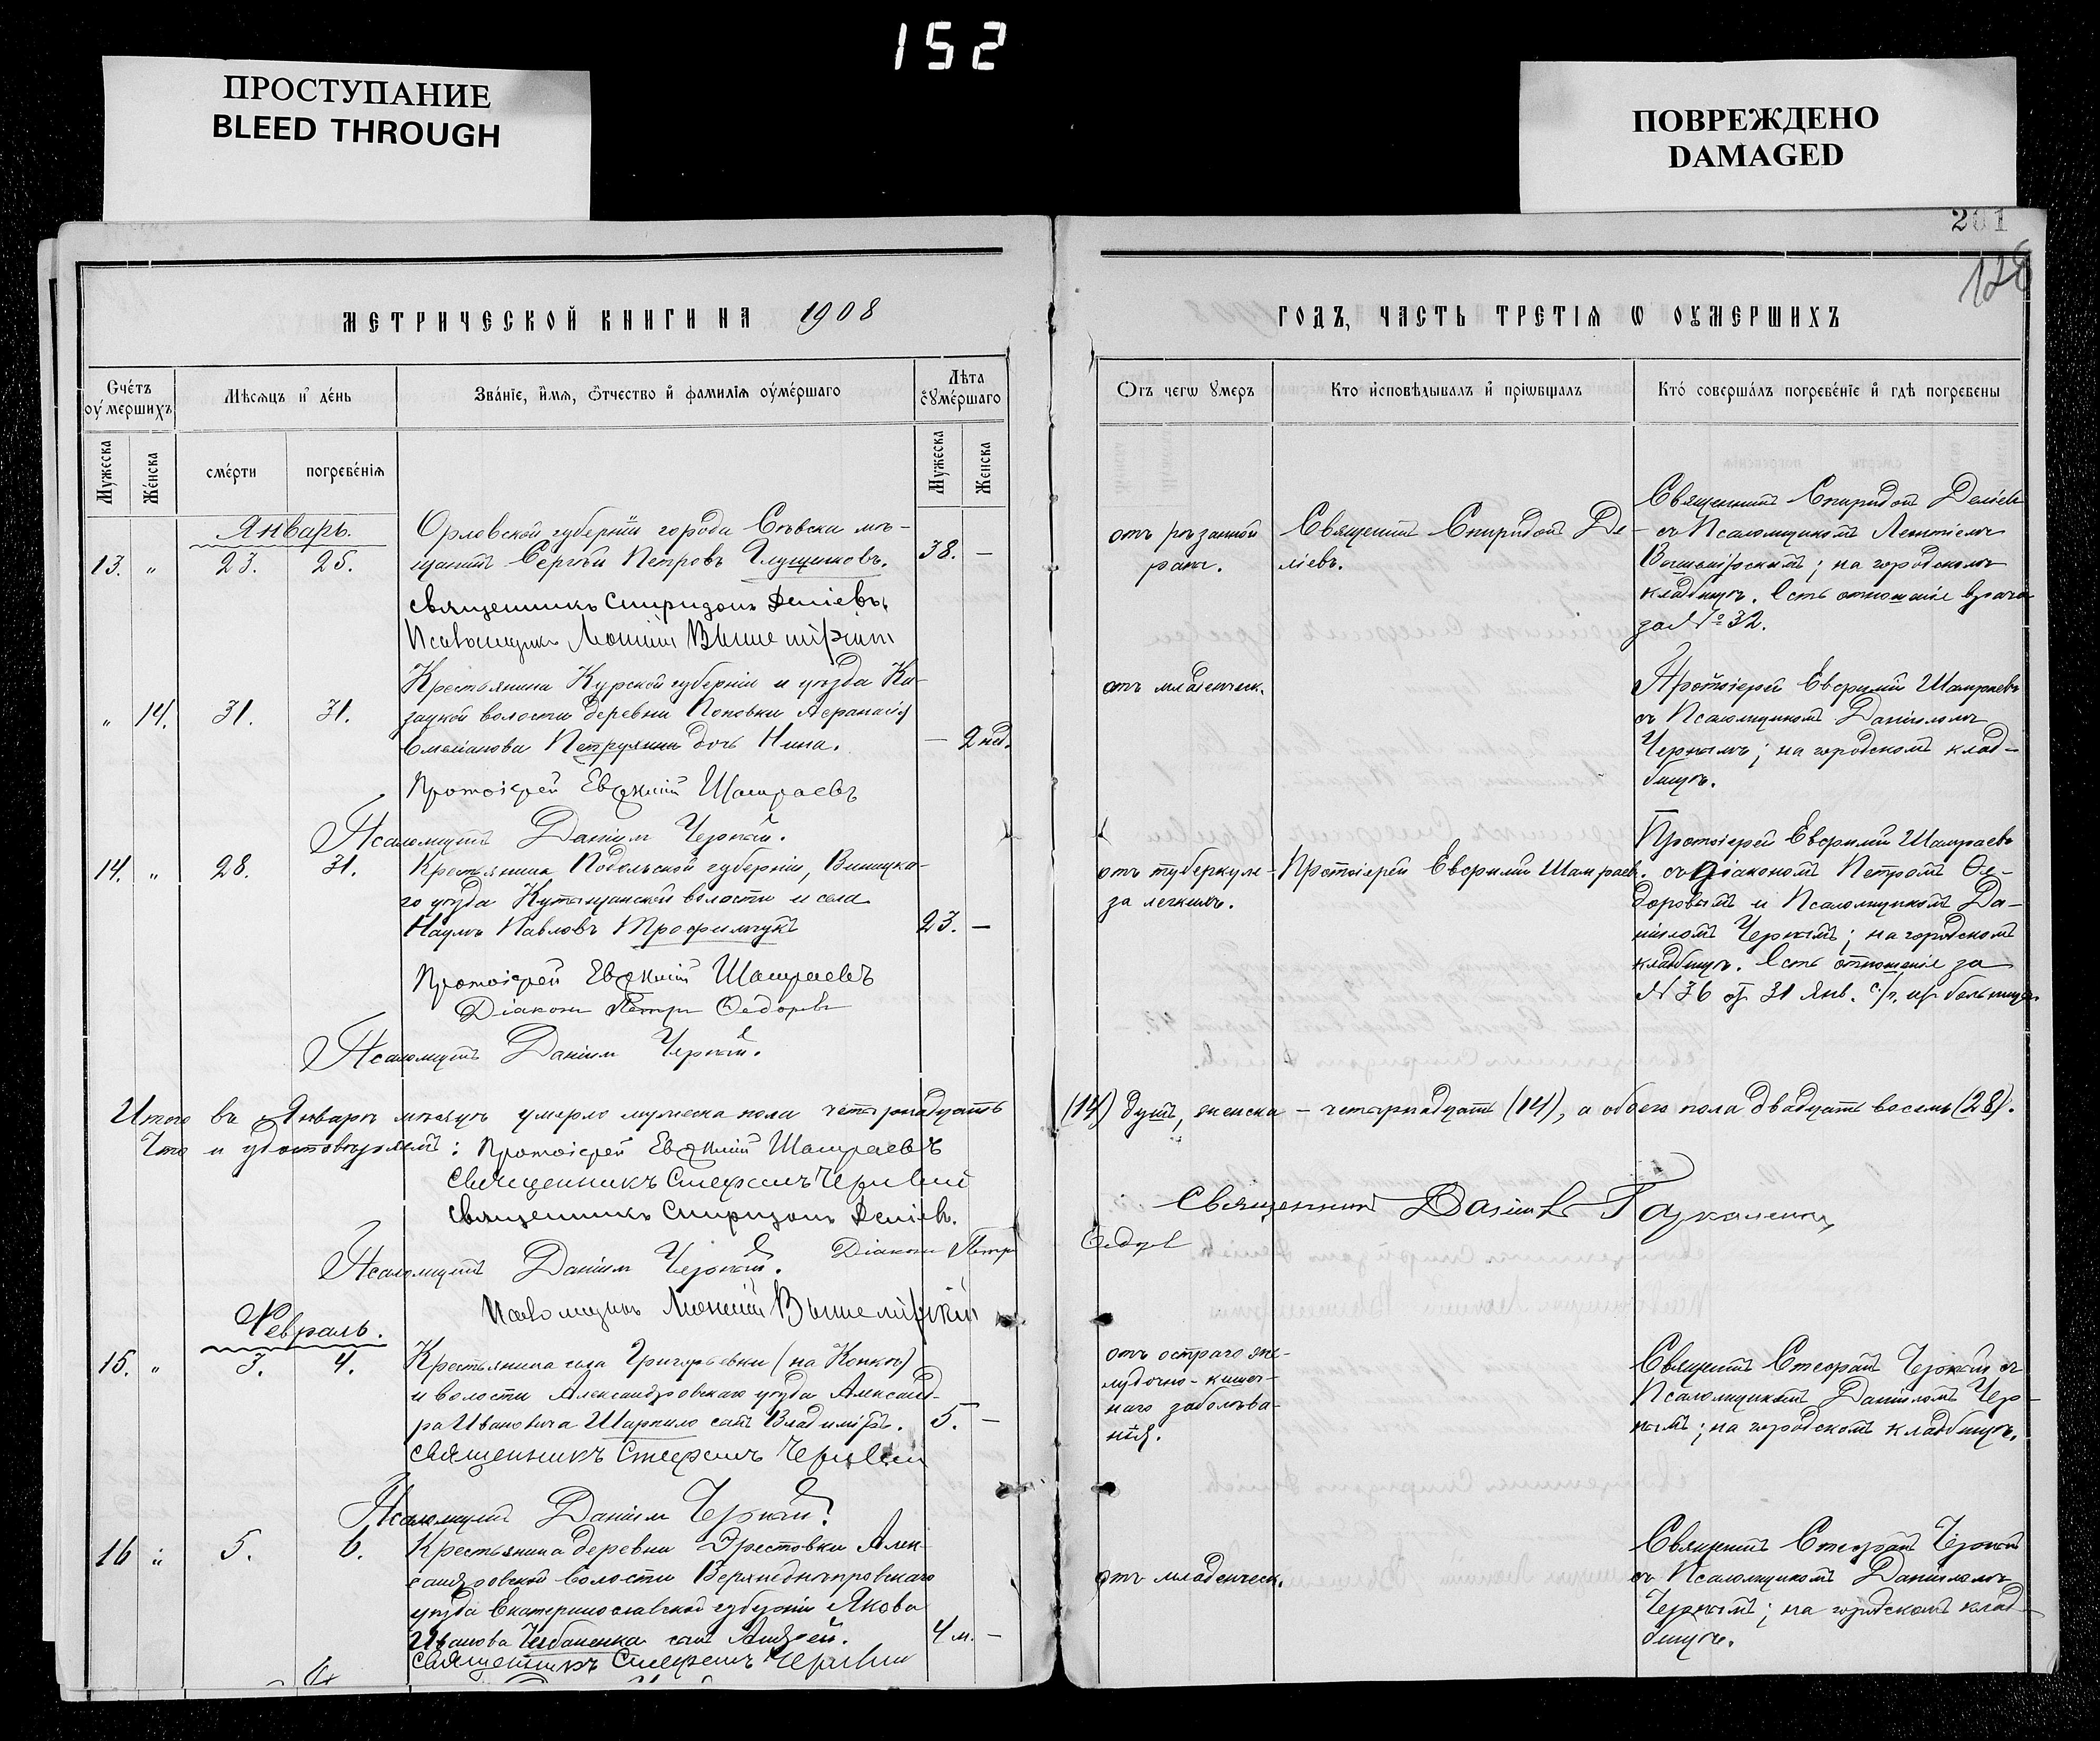 152
ПРОСТУПАНИЕ
BLEED THROUGH
ПОВРЕЖДЕНО
DAMAGED
201
128
МЕТРИЧЕСКОЙ КНИГИ НА 1908
Счётъ оумершихъ
Мѣсяцъ и день
Званіе, имя, отчество и фамилія оумершаго
Лѣта оумершаго
Мужеска
Женска
смерти
погребенія
Мужеска
Женска
Январь.
13. " 23. 25.
Орловской губерніи города Сѣвска мѣ-
щанинъ Сергѣй Петровъ Глущенковъ. 38. —
Священникъ Спиридонъ Деліевъ.
Псаломщикъ Вышемірскій
" 14. 31. 31.
Крестьянина Курской губерніи и уѣзда Ка-
зацкой волости деревни Поповки Афанасія
Емеліанова Петрухина дочь Нина. — 2 нед.
Протоіерей Евфимій Шамраевъ
Псаломщикъ Даніилъ Черный.
14. " 28. 31.
Крестьянинъ Подольской губерніи, Винницка-
го уѣзда Кутыщанской волости и села
Наумъ Павловъ Трофимчукъ 23. —
Протоіерей Евфимій Шамраевъ
Діаконъ Петръ Федоровъ
Псаломщикъ Даніилъ Черный.
Итого въ Январѣ мѣсяцѣ умерло мужеска пола четырнадцать
Что и удостовѣряемъ: Протоіерей Евфимій Шамраевъ
Священникъ Стефанъ Черный
Священникъ Спиридонъ Деліевъ.
Псаломщикъ Даніилъ Черный. Діаконъ Петръ
Псаломщикъ Вышемірскій
Февраль.
15. " 3. 4.
Крестьянина села Григорьевки (на Конкѣ)
и волости Александровскаго уѣзда Александ-
ра Ивановича Шарпило сынъ Владиміръ. 5. —
Священникъ Стефанъ Черный
Псаломщикъ Даніилъ Черный.
16 " 5. 6.
Крестьянина деревни Эрестовки Алек-
сандровской волости Верхнеднѣпровскаго
уѣзда Екатеринославской губерніи Якова
Иванова Чабаненка сынъ Андрей. 4 м. —
Священникъ Стефанъ Черный
ГОДЪ, ЧАСТЬ ТРЕТІЯ Ѡ ОУМЕРШИХЪ
Отъ чегѡ умеръ
Кто исповѣдывалъ и пріѡбщалъ
Кто совершалъ погребеніе и гдѣ погребены
отъ рѣзанной
раны.
Священникъ Спиридонъ Де-
ліевъ.
Священникъ Спиридонъ Деліевъ
съ Псаломщикомъ Леонтіемъ
Вышемірскимъ; на городскомъ
кладбищѣ. Есть отношеніе врача
за № 32.
отъ младенческ.
Протоіерей Евфимій Шамраевъ
съ Псаломщикомъ Даніиломъ
Чернымъ; на городскомъ клад-
бищѣ.
отъ туберкуле-
за легкихъ.
Протоіерей Евфимій Шамраевъ.
Протоіерей Евфимій Шамраевъ
съ Діакономъ Петромъ Фе-
доровымъ и Псаломщикомъ Да-
ніиломъ Чернымъ; на городскомъ
кладбищѣ. Есть отношеніе за
№ 36 отъ 31 Янв. с/г.
(14) душъ, женска — четырнадцать (14), а обоего пола двадцать восемь (28).
Священникъ Даніилъ
Федоровъ
отъ остраго же-
лудочно-кишеч-
наго заболѣва-
нія.
Священникъ Стефанъ Черный съ
Псаломщикомъ Даніиломъ Чер-
нымъ; на городскомъ кладбищѣ.
отъ младенческ.
Священникъ Стефанъ Черный
съ Псаломщикомъ Даніиломъ
Чернымъ; на городскомъ клад-
бищѣ.